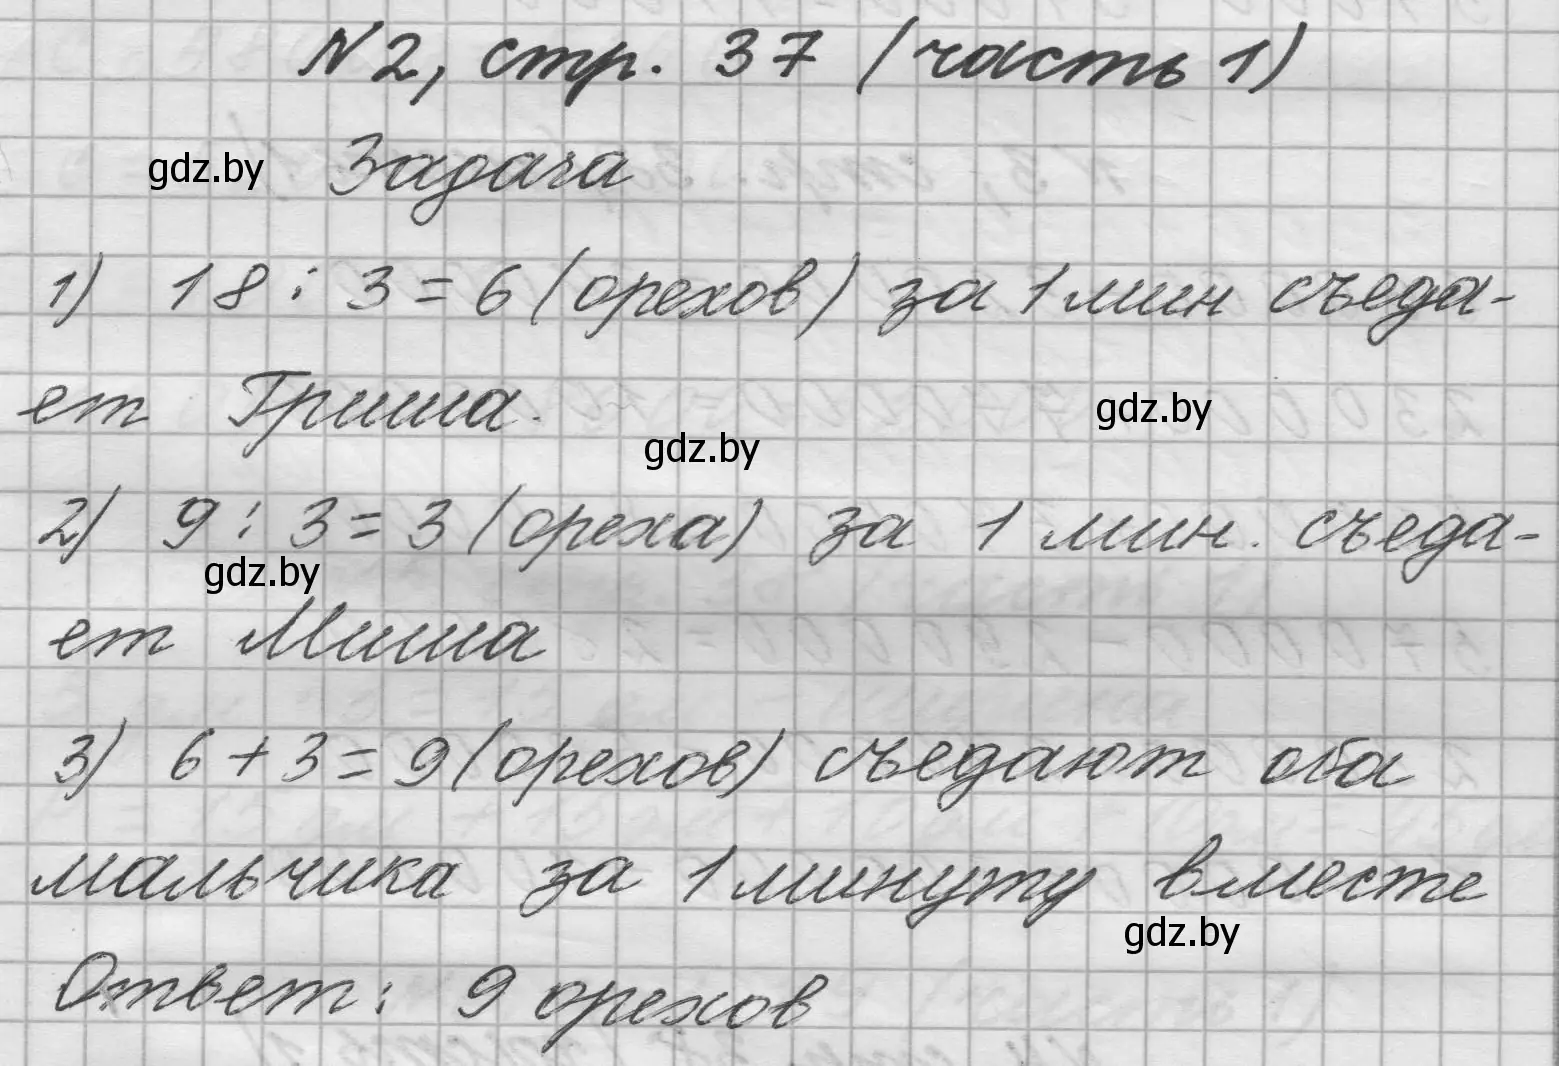 N2, стр. 37 (часть 1)
gdz.by Задача
1) 18 : 3 = 6 (орехов) за 1 мин съеда-
ет Гриша.
gdz.by
gdz.by
2) 9 : 3 = 3 (ореха) за 1 мин. съеда-
gdz.by
ет Миша
3) 6 + 3 = 9 (орехов) съедают оба
мальчика за 1 минуту вместе
gdz.by
Ответ: 9 орехов